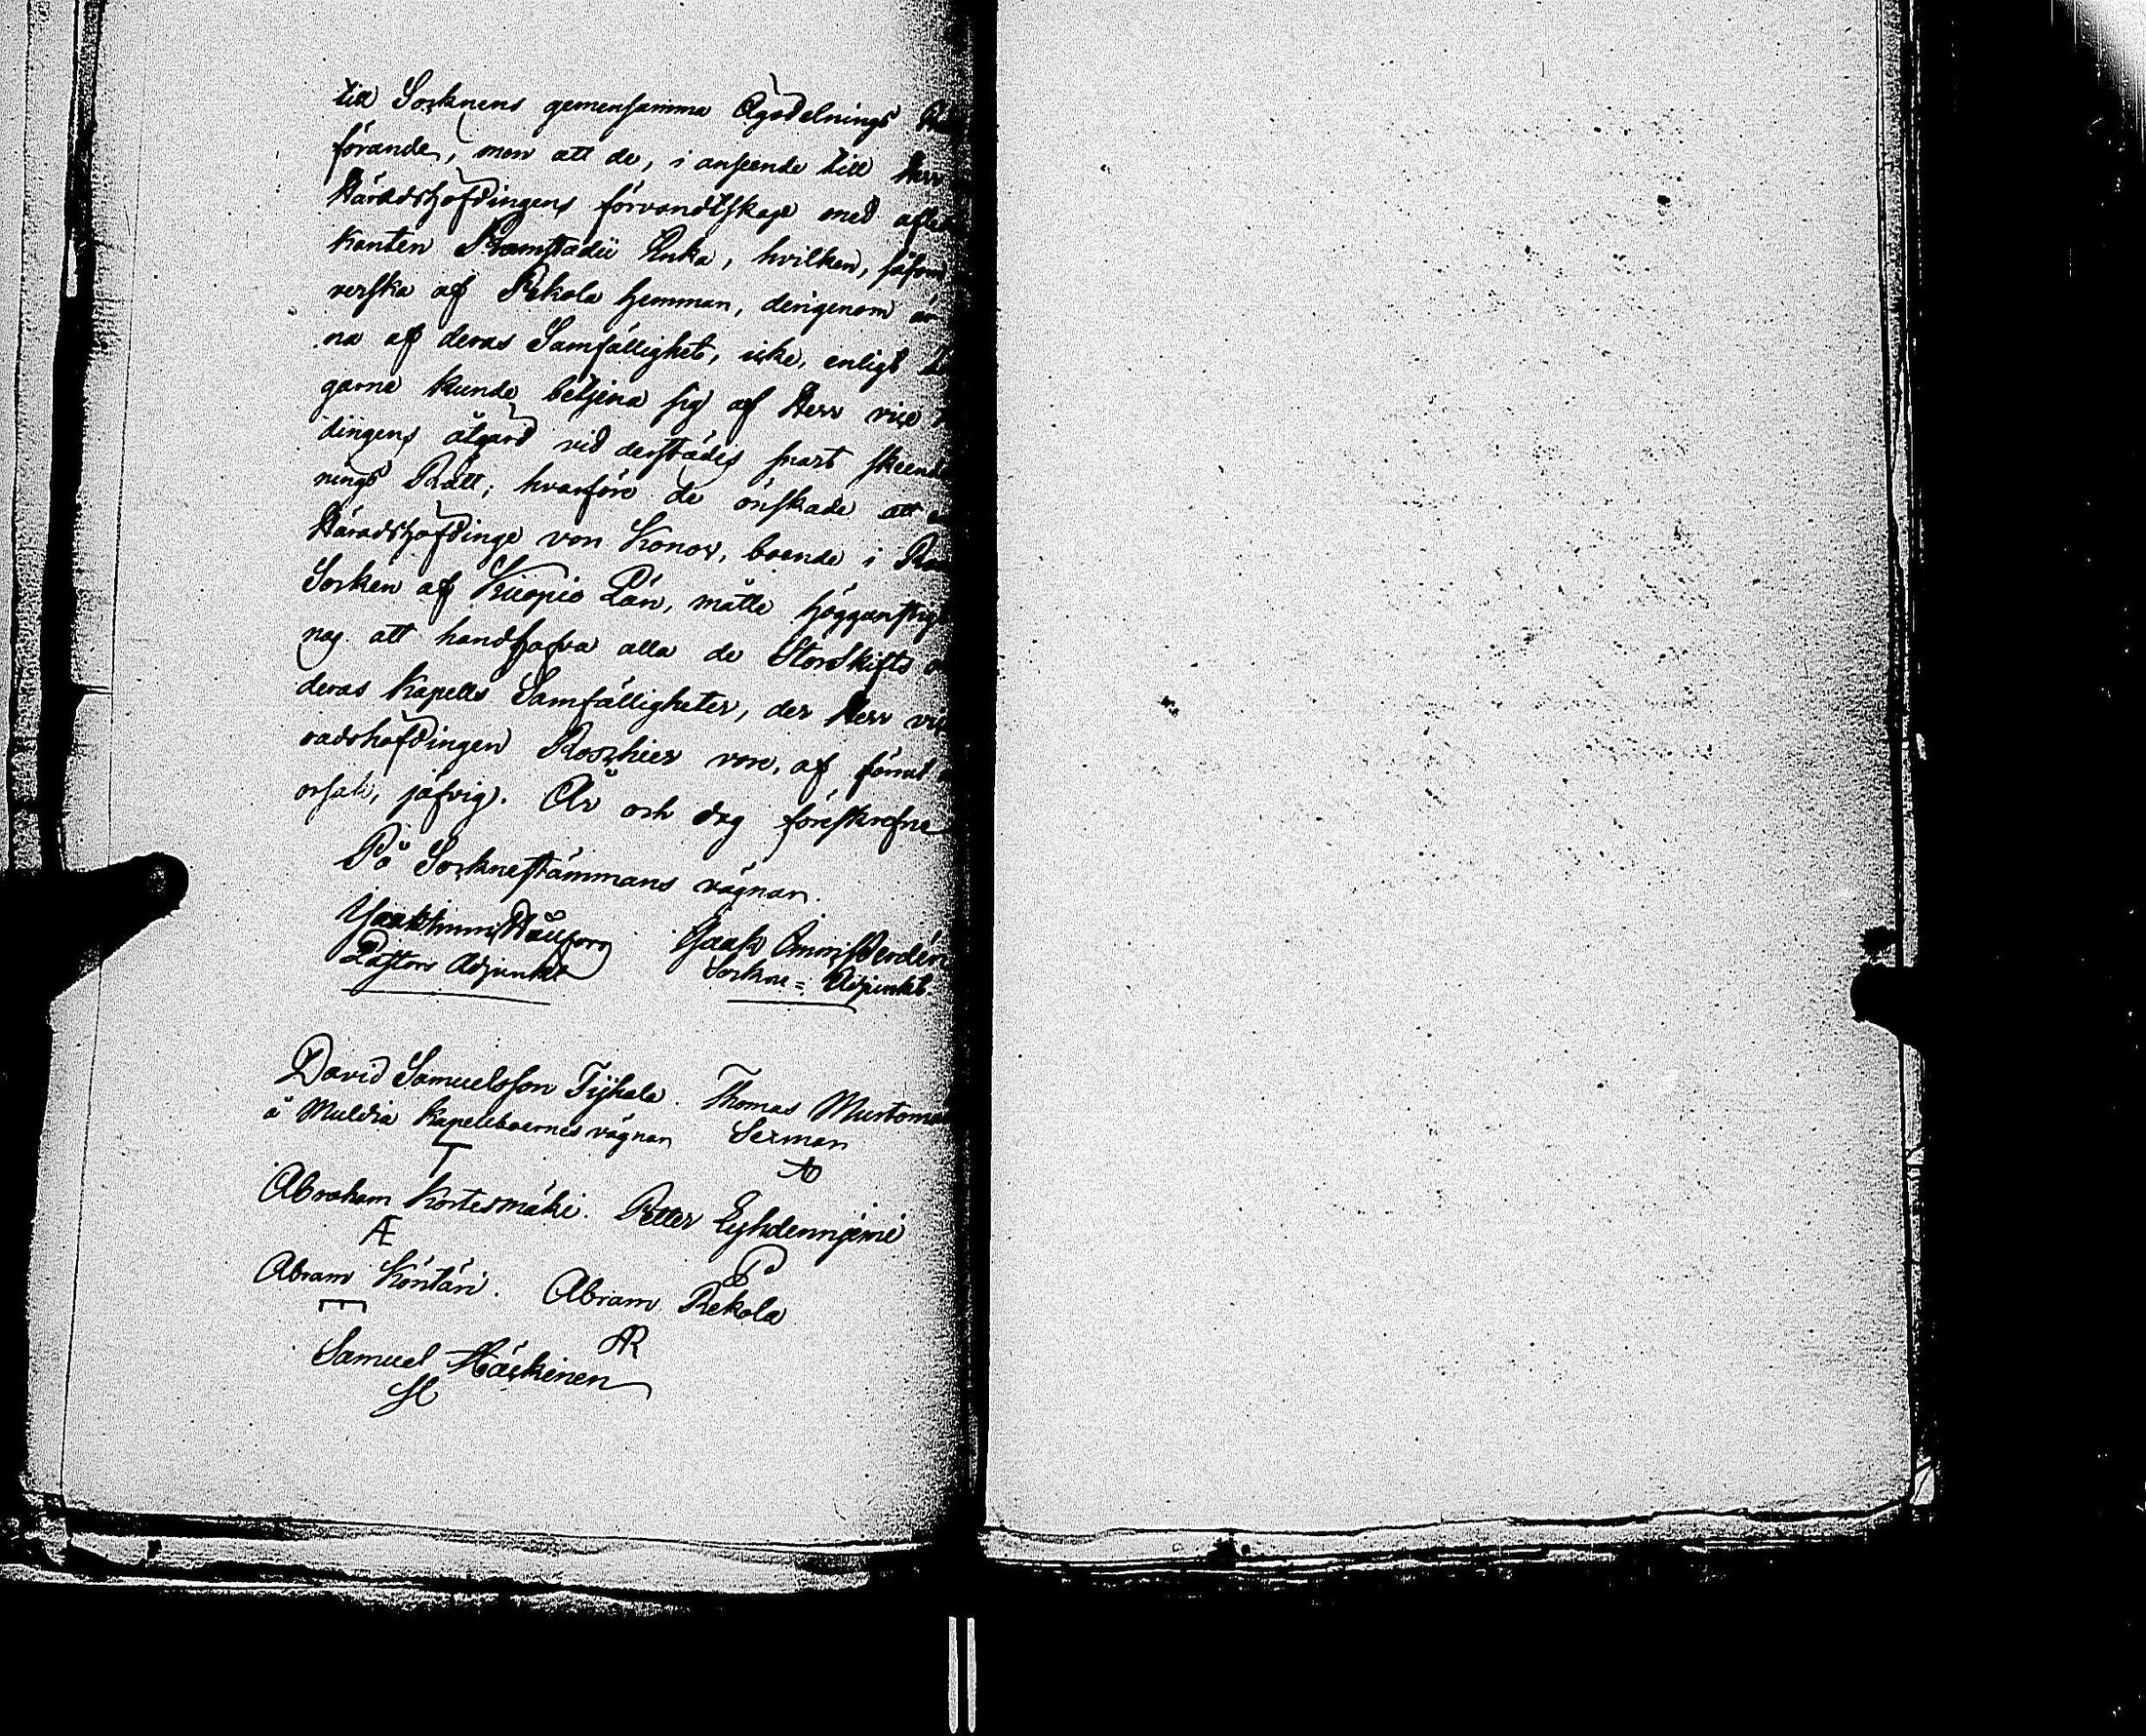 till Sorknens gemensamma Ägodelnings
förande, men att de, i anseende till Herr
Häradshöfdingens förvandtskap med afle
kanten Framstadii Enka, hvilken, såsom
verska af Rekola hemman, derigenom är
na af deras Samfällighet, icke, enligt
garne kunde betjena sig af Herr vice
dingens åtgärd vid derstädes snart skeende
nings Rätt; hvarföre de önskade att
Häradshöfdinge von Konow, boende i
Sorken af Kuopio Län, måtte höggunstigt
nas att handhafva alla de Storskifts
deras Kapells Samfälligheter, der Herr
radshöfdingen Roschier vore, af förmäl
orsak, jäfvig. År och dag föreskrefne
På Sorknestämmans vägnar.
Pastors Adjunkt Sorkne= Adjunkt.
David Samuelsson Tyhala. Thomas
å Muldia Kapellboernes vägnar Sexman
Abraham Kortesmäki. Petter Lyhdenniemi
Æ
Abram Köntäri. Abram Rekola
AR
Samuel Häckinen
SH